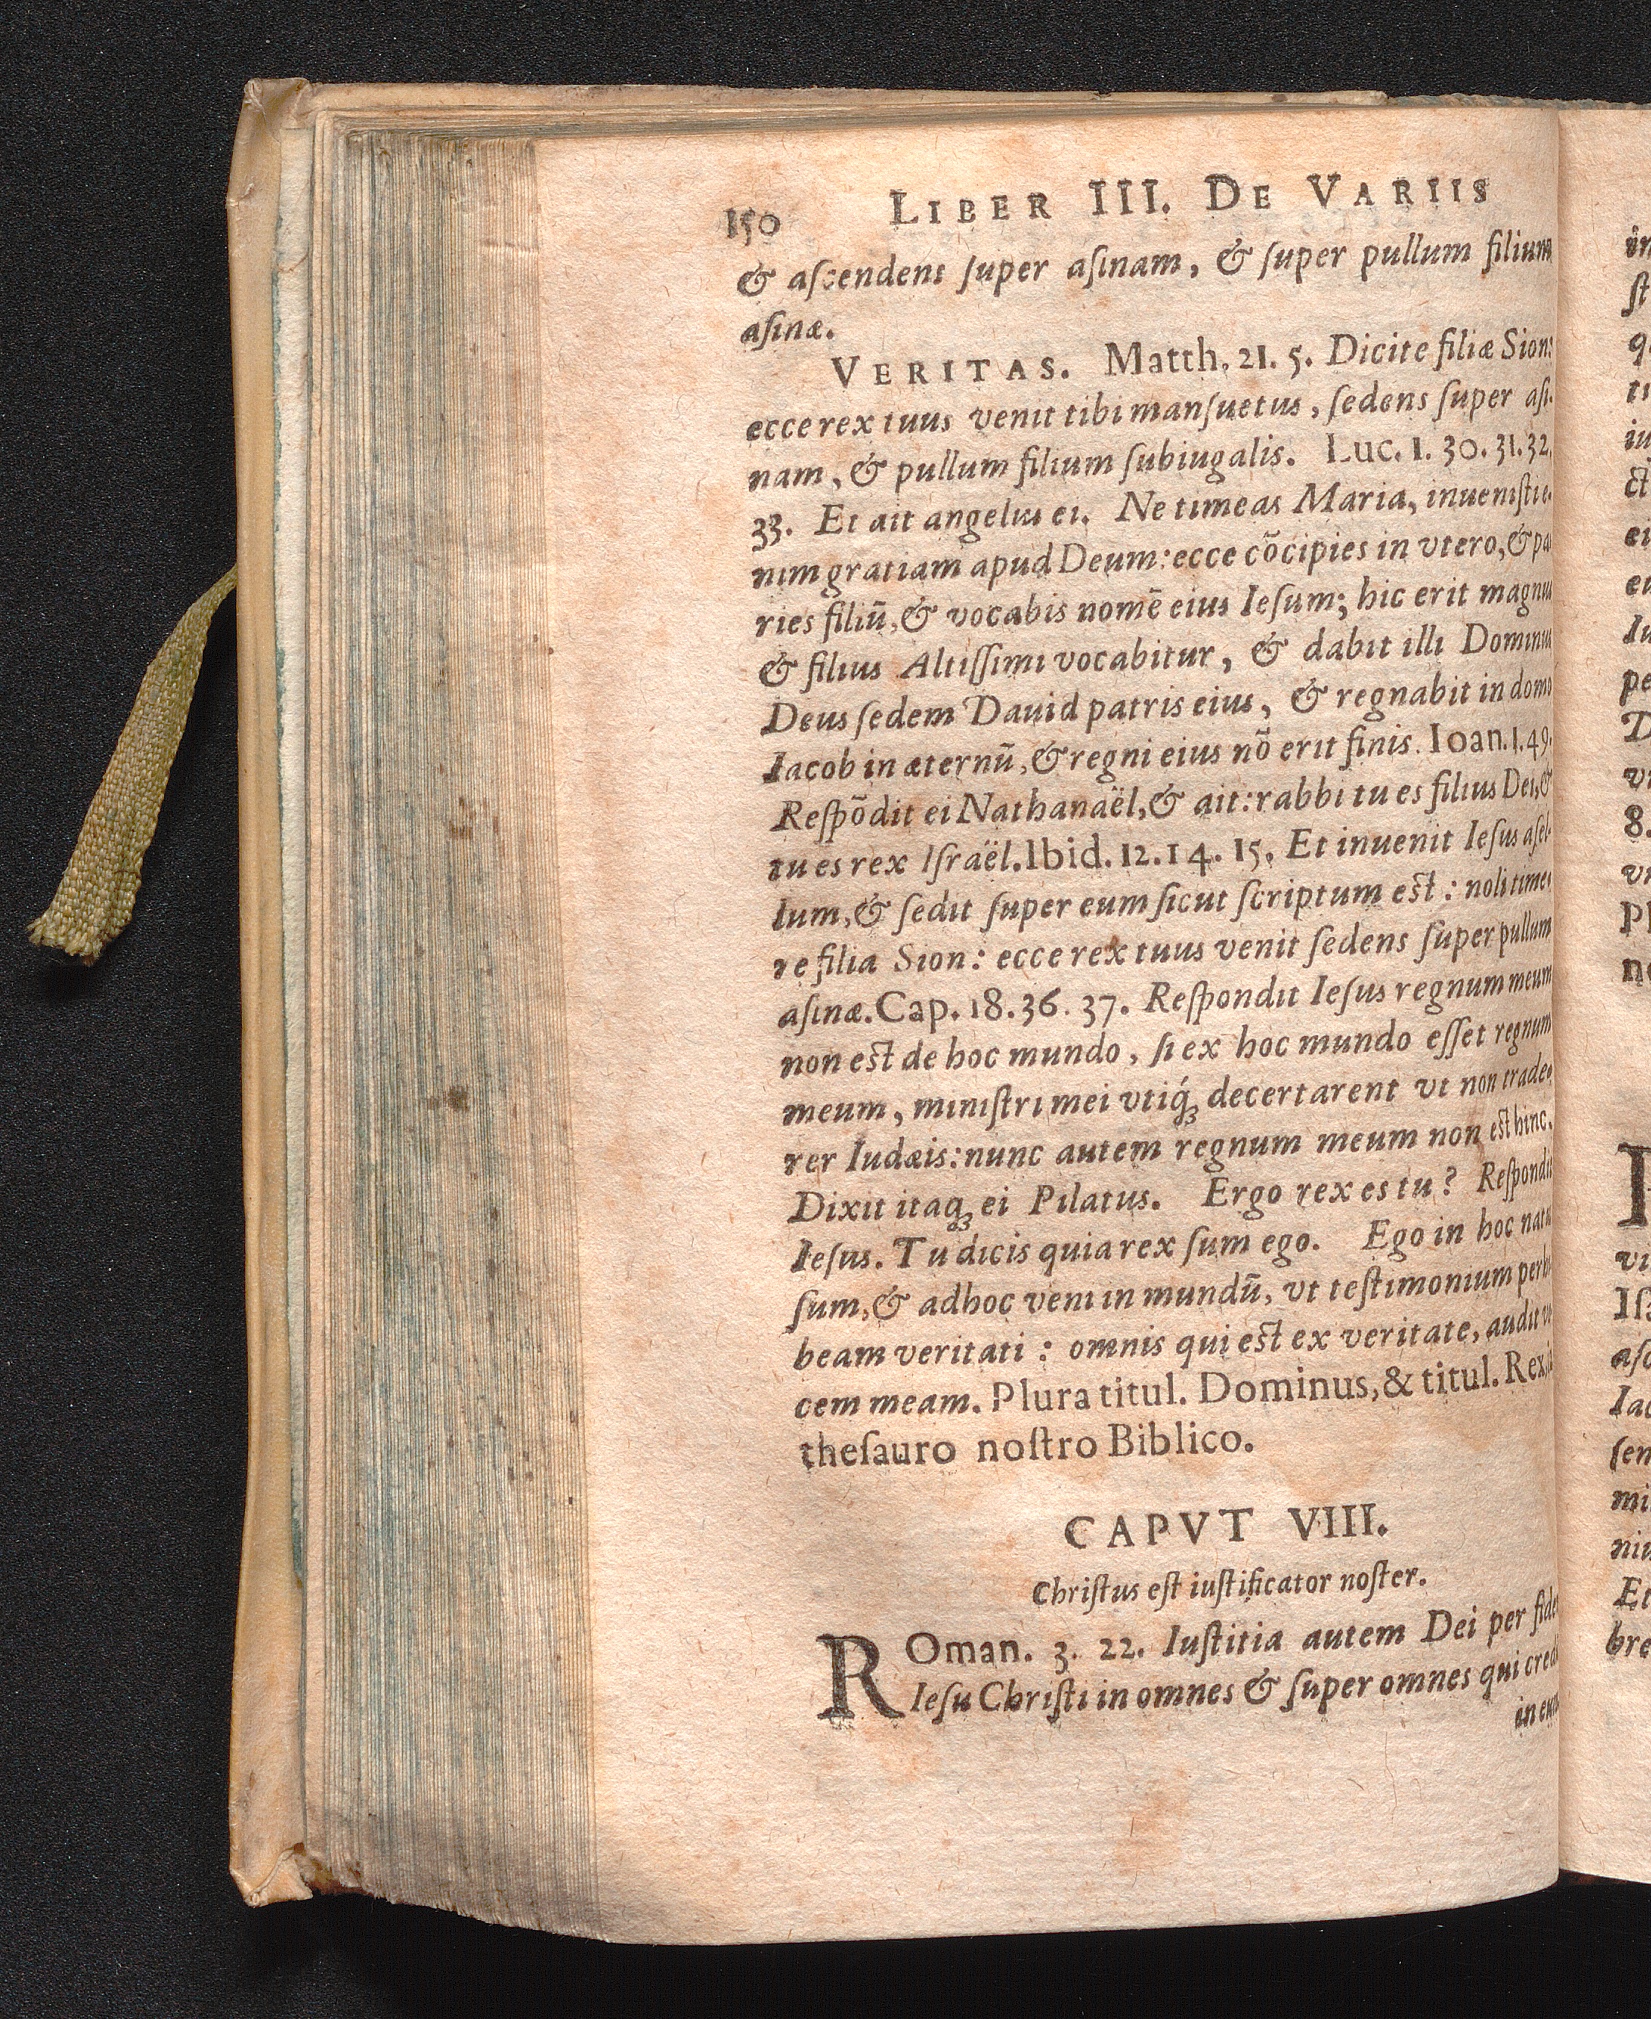 150 LIBER III. DE VARIIS
& aſcendens ſuper aſinam, & ſuper pullum filium
aſinæ.
VERITAS. Matth. 21. 5. Dicite filiæ Sion:
ecce rex tuus venit tibi manſuetus, ſedens ſuper aſi-
nam, & pullum filium ſubiugalis. Luc. 1. 30. 31. 32.
33. Et ait angelus ei. Ne timeas Maria, inueniſti e-
nim gratiam apud Deum: ecce cōcipies in vtero, & pa
ries filiū, & vocabis nomē eius Ieſum; hic erit magnus
& filius Altiſſimi vocabitur, & dabit illi Dominus
Deus ſedem Dauid patris eius, & regnabit in domo
Iacob in æternū, & regni eius nō erit finis. Ioan. 1. 49.
Reſpōdit ei Nathanaël, & ait: rabbi tu es filius Dei, &
tu es rex Iſraël. Ibid. 12. 14. 15. Et inuenit Ieſus aſel-
lum, & ſedit ſuper eum ſicut ſcriptum eſt: noli time
re filia Sion: ecce rex tuus venit ſedens ſuper pullum
aſinæ. Cap. 18. 36. 37. Reſpondit Ieſus regnum meum
non eſt de hoc mundo, ſi ex hoc mundo eſſet regnum
meum, miniſtri mei vtiq́ꝫ decertarent vt non trade-
rer Iudæis: nunc autem regnum meum non eſt hinc.
Dixit itaqꝫ ei Pilatus. Ergo rex es tu? Reſpondit
Ieſus. Tu dicis quia rex ſum ego. Ego in hoc natus
ſum, & ad hoc veni in mundū, vt teſtimonium perhi
beam veritati: omnis qui eſt ex veritate, audit vo
cem meam. Plura titul. Dominus, & titul. Rex, in
theſauro noſtro Biblico.
CAPVT VIII.
Chriſtus eſt iuſtificator noſter.
ROman. 3. 22. Iuſtitia autem Dei per fidem
Ieſu Chriſti in omnes & ſuper omnes qui credu
in eum